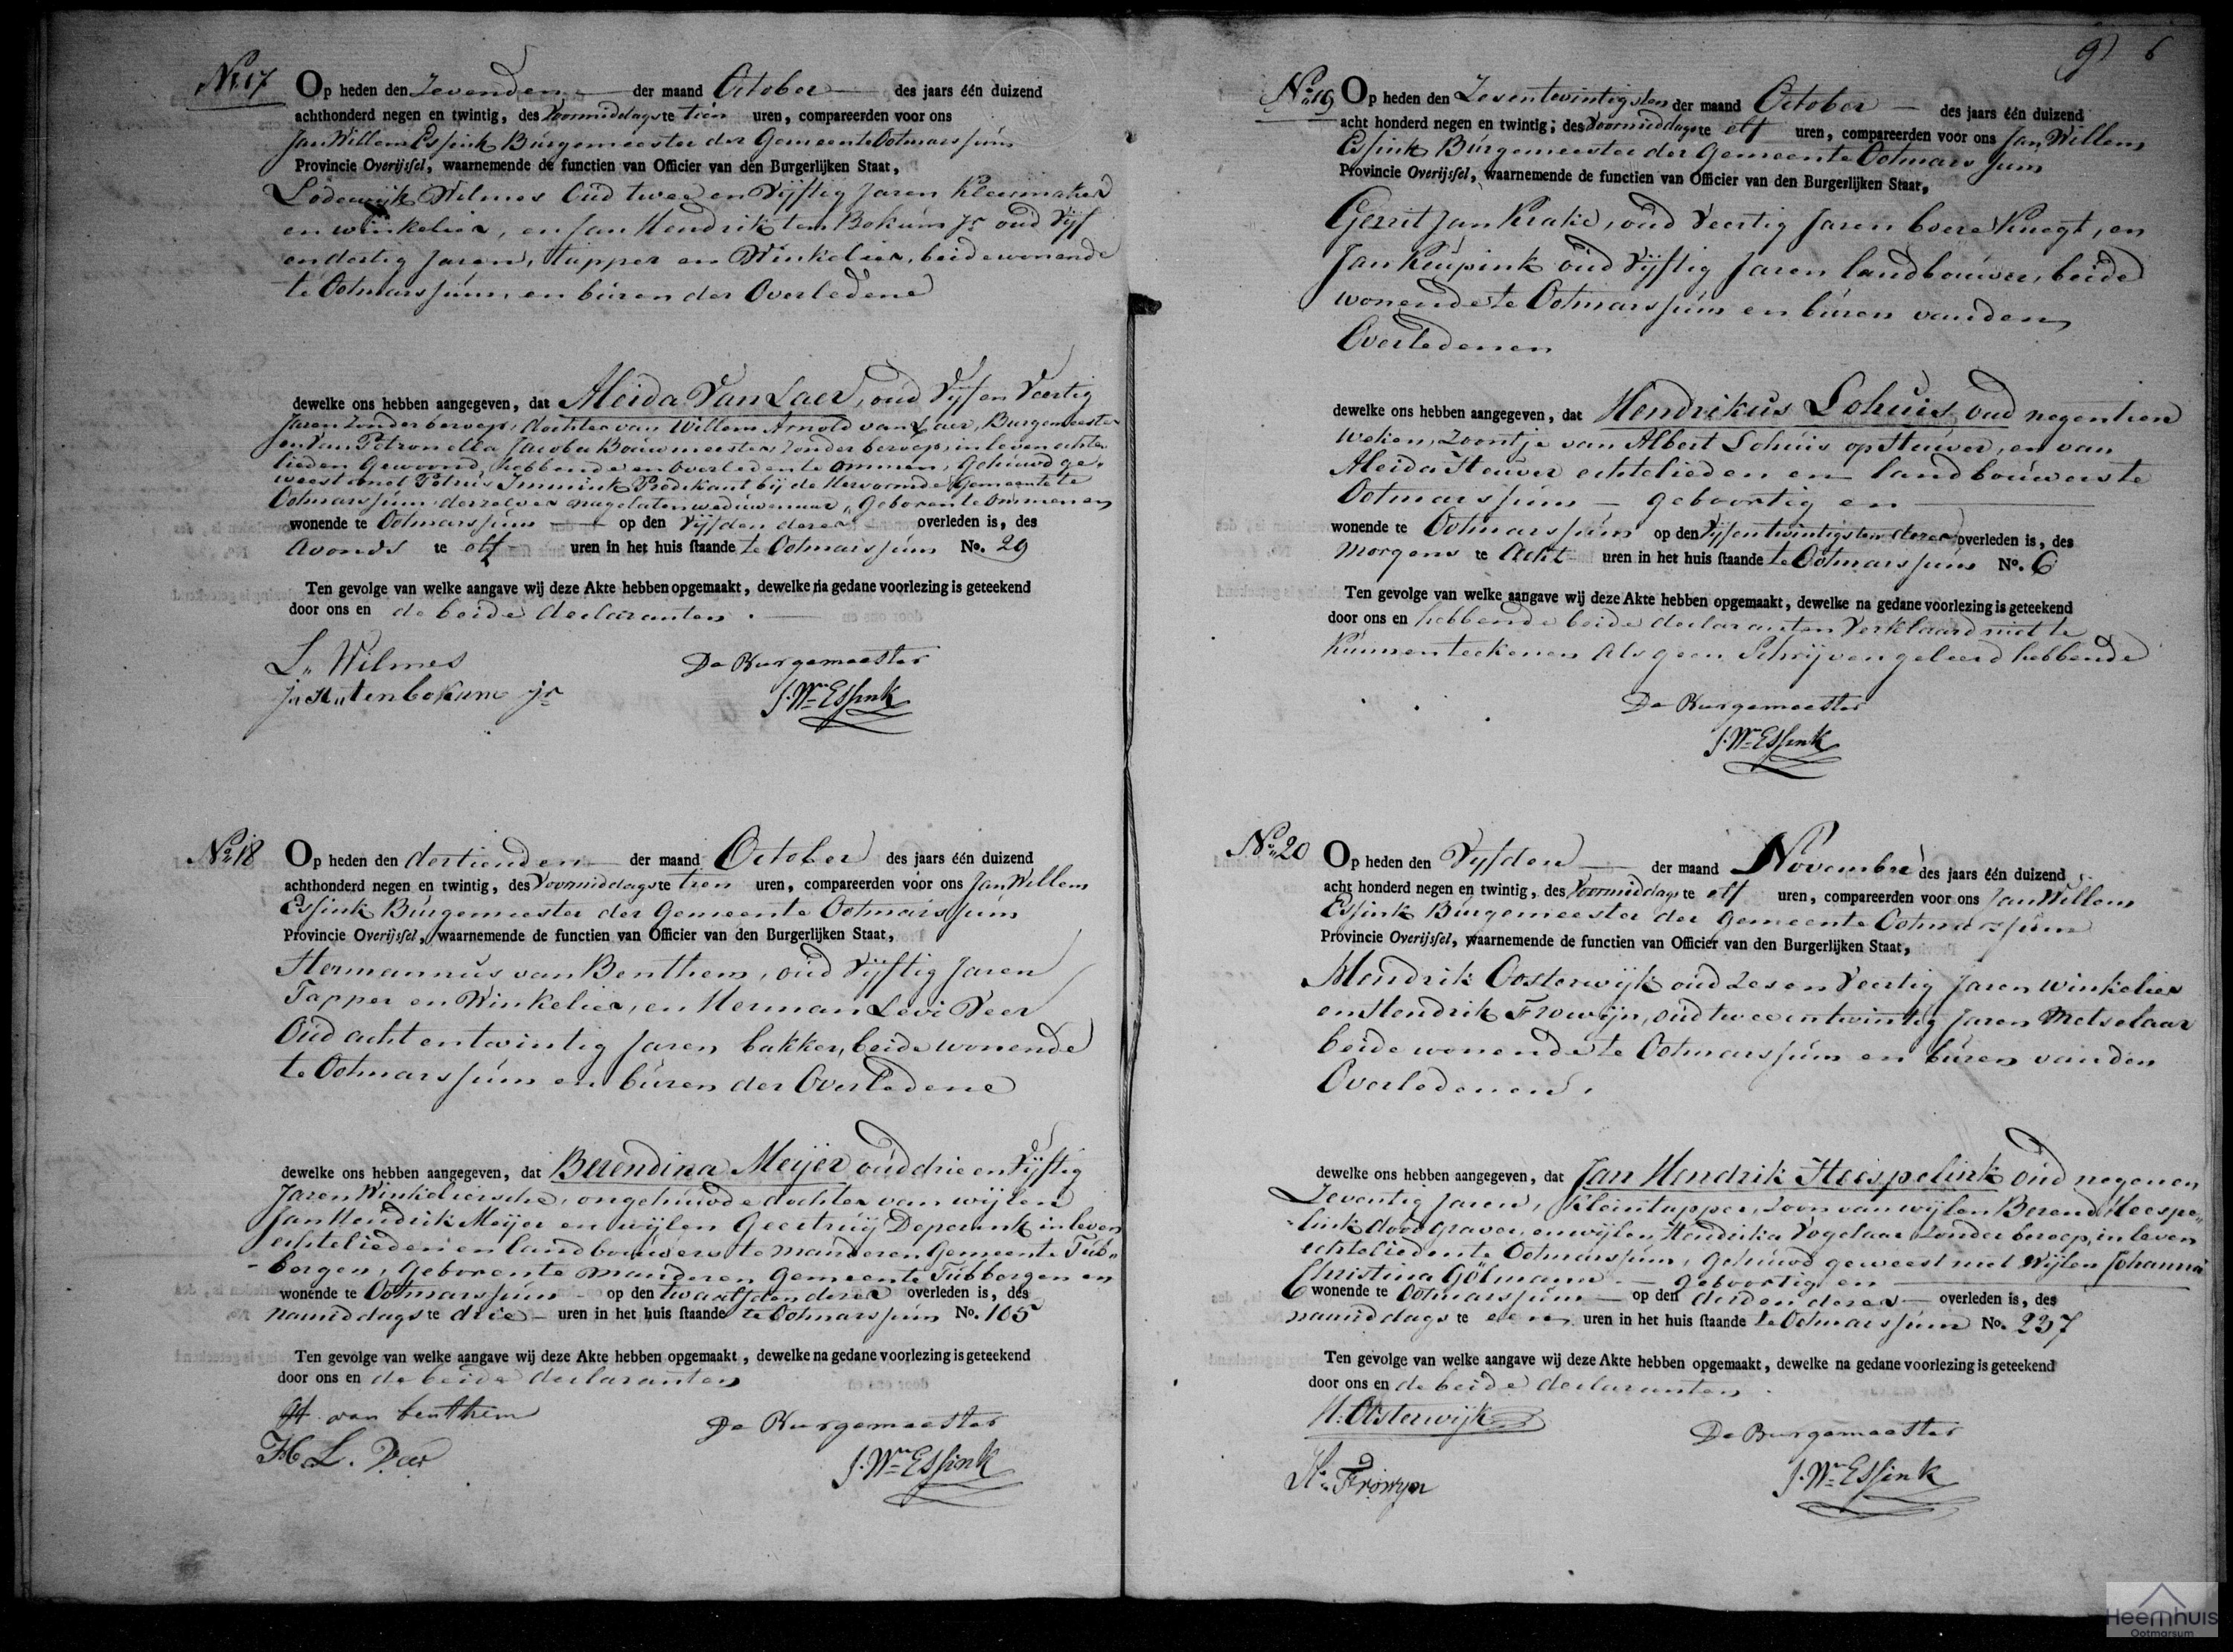 No. 17 Op heden den Zevenden der maand October des jaars één duizend
achthonderd negen en twintig, des Voormiddags te tien uren, compareerden voor ons
Jan Willem Essink Burgemeester der Gemeente Ootmarssum
Provincie Overijssel, waarnemende de functien van Officier van den Burgerlijken Staat,
Lodewijk Wilmes Oud twee en Vijftig Jaren Kleermaker
en winkelier, en Jan Hendrik ten Bokum Jr oud Vijf
en dertig Jaren, tapper en Winkelier, beide wonende
te Ootmarssum, en buren der Overledene
dewelke ons hebben aangegeven, dat Aleida Van Laer, oud Vijf en Veertig
Jaren Zonder beroep, dochter van Willem Arnold van Laer, Burgemeester
en van Petronella Jacoba Bouwmeester Zonder beroep, in leven echte
lieden Gewoond hebbende en Overleden te Ommen, Gehuwd ge-
weest met Petrus Immink Predikant bij de Hervormde Gemeente te
Ootmarssum derzelver nagelaten weduwenaar, Geboren te Ommen en
wonende te Ootmarssum op den Vijfden dezer overleden is, des
Avonds te elf uren in het huis staande te Ootmarssum No. 29
Ten gevolge van welke aangave wij deze Akte hebben opgemaakt, dewelke na gedane voorlezing is geteekend
door ons en de beide declaranten.
L. Wilmes De Burgemeester
J. H. ten bokum jr J. Wm Essink
No. 18 Op heden den dertienden der maand October des jaars één duizend
achthonderd negen en twintig, des Voormiddags te tien uren, compareerden vóor ons Jan Willem
Essink Burgemeester der Gemeente Ootmarssum
Provincie Overijssel, waarnemende de functien van Officier van den Burgerlijken Staat,
Hermannus van Benthem, oud Vijftig Jaren
Tapper en Winkelier, en Herman Levi Veer
Oud acht en twintig Jaren bakker, beide wonende
te Ootmarssum en buren der Overledene
dewelke ons hebben aangegeven, dat Berendina Meijer oud drie en Vijftig
Jaren Winkeliersche, ongehuwde dochter van wijlen
Jan Hendrik Meijer en wijlen Geertruij Deperink in leven
echtelieden en landbouwers te Manderen Gemeente Tub-
bergen, Geboren te Manderen Gemeente Tubbergen en
wonende te Ootmarssum op den twaalfden dezer overleden is, des
namiddags te drie uren in het huis staande te Ootmarssum No. 105
Ten gevolge van welke aangave wij deze Akte hebben opgemaakt, dewelke na gedane voorlezing is geteekend
door ons en de beide declaranten
H. van benthem De Burgemeester
H. L. Veer J. Wm Essink
9) 6
No. 19 Op heden den Zesentwintigsten der maand October des jaars één duizend
acht honderd negen en twintig, des Voormiddags te elf uren, compareerden voor ons Jan Willem
Essink Burgemeester der Gemeente Ootmarssum
Provincie Overijssel, waarnemende de functien van Officier van den Burgerlijken Staat,
Gerrit Jan Krake, oud Veertig Jaren boere Knegt, en
Jan Keupink oud Vijftig Jaren landbouwer, beide
wonende te Ootmarssum en buren van den
Overledenen
dewelke ons hebben aangegeven, dat Hendrikus Lohuis oud negentien
Weken, Zoontje van Albert Lohuis op Heuver, en van
Aleida Heuver echtelieden en landbouwers te
Ootmarssum geboortig en
wonende te Ootmarssum op den Vijfentwintigsten dezer overleden is, des
Morgens te Acht uren in het huis staande te Ootmarssum No. 6
Ten gevolge van welke aangave wij deze Akte hebben opgemaakt, dewelke na gedane voorlezing is geteekend
door ons en hebbende beide declaranten Verklaard niet te
Kunnen teekenen Als geen Schrijven geleerd hebbende
De Burgemeester
J. Wm Essink
No. 20 Op heden den Vijfden der maand November des jaars één duizend
acht honderd negen en twintig, des Voormiddags te elf uren, compareerden voor ons Jan Willem
Essink Burgemeester der Gemeente Ootmarssum
Provincie Overijssel, waarnemende de functien van Officier van den Burgerlijken Staat,
Hendrik Oosterwijk oud Zes en Veertig Jaren winkelier
en Hendrik Frowijn, oud twee en twintig Jaren Metselaar
beide wonende te Ootmarssum en buren van den
Overledenen.
dewelke ons hebben aangegeven, dat Jan Hendrik Heespelink oud negen en
Zeventig Jaren, Kleintapper, Zoon van wijlen Berend Heespe-
link dood graver, en wijlen Hendrika Vogelaar Zonder beroep, in leven
echtelieden te Ootmarssum, Gehuwd geweest met Wijlen Johanna
Christina Gölmann geboortig en
wonende te Ootmarssum op den derden dezer overleden is, des
namiddags te een uren in het huis staande te Ootmarssum No. 237
Ten gevolge van welke aangave wij deze Akte hebben opgemaakt, dewelke na gedane voorlezing is geteekend
door ons en de beide declaranten
H. Oosterwijk De Burgemeester
H. Frowijn J. Wm Essink
Heemhuis
Ootmarsum